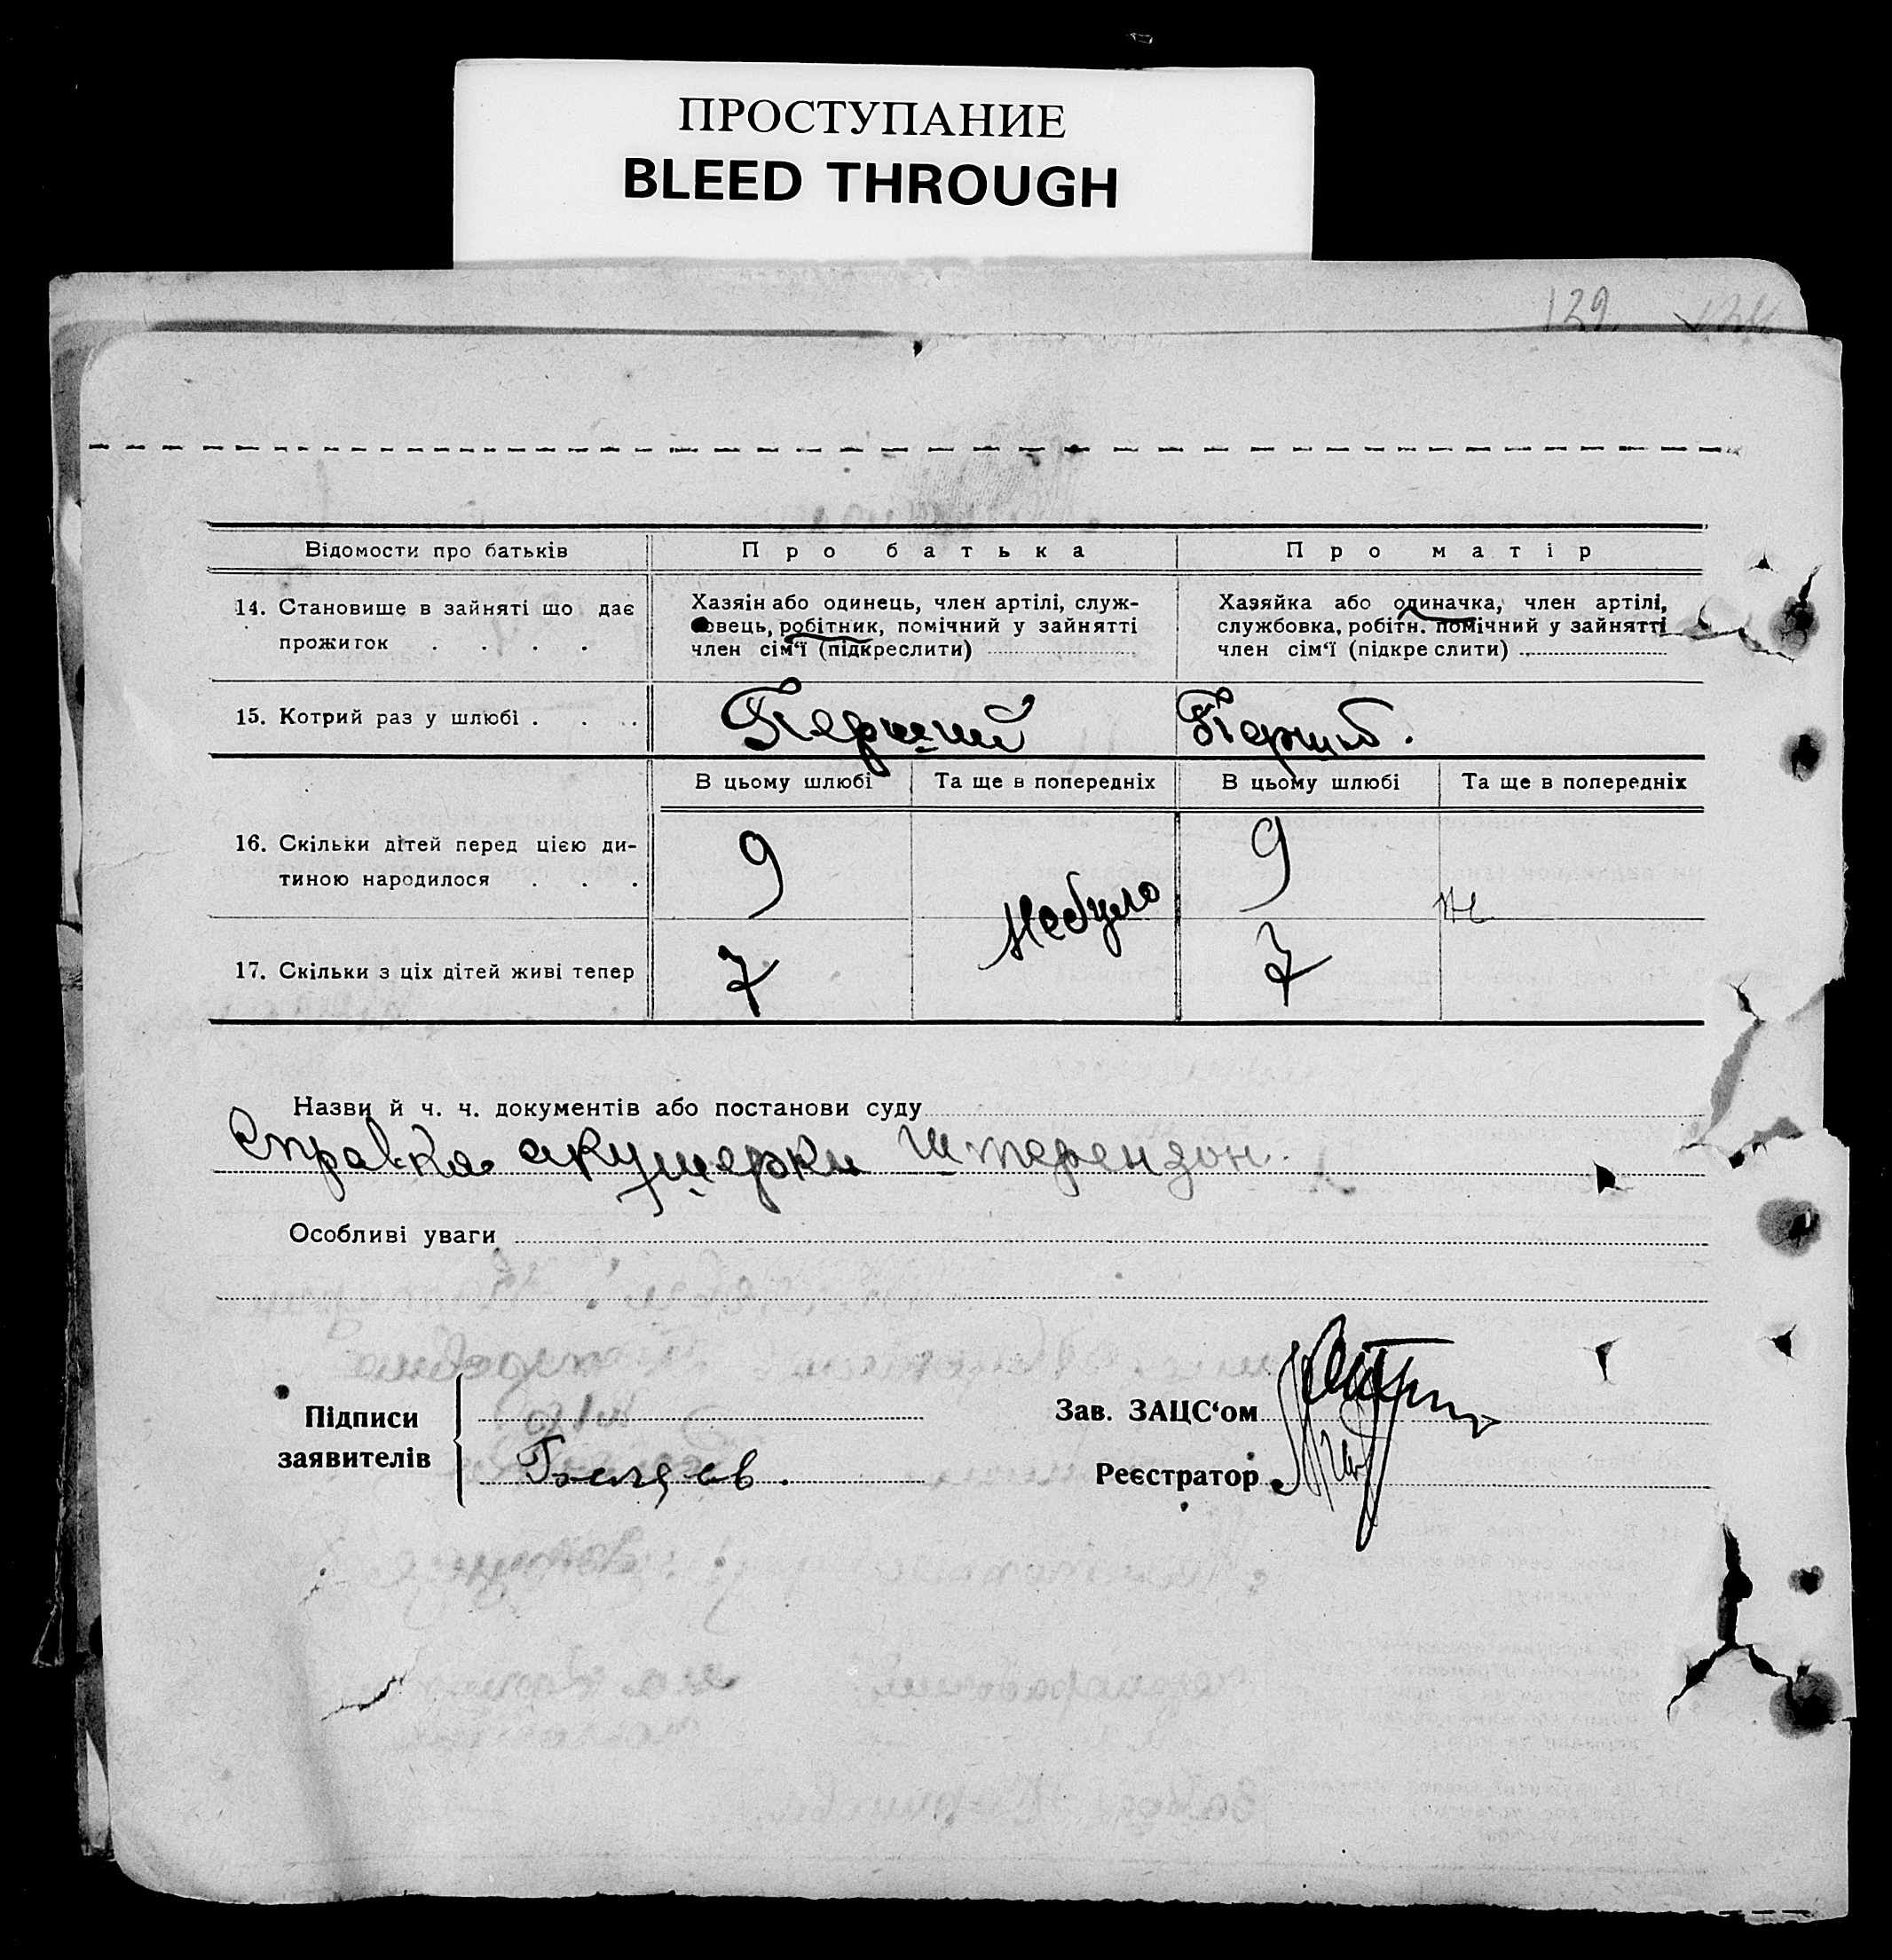 ПРОСТУПАНИЕ
BLEED THROUGH
129
Відомости про батьків
Про батька
Про матір
14. Становище в зайняті що дає
прожиток . . . .
Хазяін або одинець, член артілі, служ-
бовець, робітник, помічний у зайнятті
член сім‘ї (підкреслити)
Хазяйка або одиначка, член артілі,
службовка, робітн. помічний у зайнятті
член сім‘ї (підкреслити)
15. Котрий раз у шлюбі . . .
Перший
Перший.
В цьому шлюбі
Та ще в попередніх
В цьому шлюбі
Та ще в попередніх
16. Скільки дітей перед цією ди-
тиною народилося . . .
9
Небуло
9
17. Скільки з ціх дітей живі тепер
7
7
Назви й ч. ч. документів або постанови суду
Справка акушерки Штерензон.
Особливі уваги
Підписи
заявителів
Зав. ЗАЦС‘ом
Реєстратор